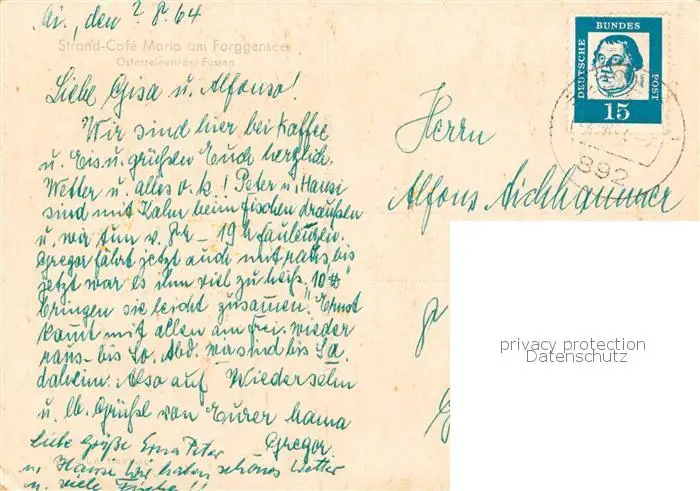 den 2 8. 64
Strand-Café Maria am Forggensee
Osterreinen/bei Füssen
Liebe Gisa u. Alfonso!
Wir sind hier bei Kaffee
u. Eis u. grüßen Euch herzlich.
Wetter u. alles o.k.! Peter u. Hansi
sind mit Kahn beim fischen draußen
u. wir tun v. 8h – 19h faulenzen.
Gregor fährt jetzt auch mit raus bis
jetzt war es ihm viel zu heiß. 10 ℔
bringen sie leicht zusamen. Ernst
komt mit allen am Frei. wieder
raus bis So. Abd. wir sind bis Sa.
daheim. Also auf Wiedersehn
u. lb. Grüße von Eurer Mama
liebe Grüße Erna Peter Gregor
u. Hansi wir haben schönes Wetter
u. viele Fische!!
Herrn
Alfons Aichhammer
DEUTSCHE BUNDES POST
15
892
privacy protection
Datenschutz